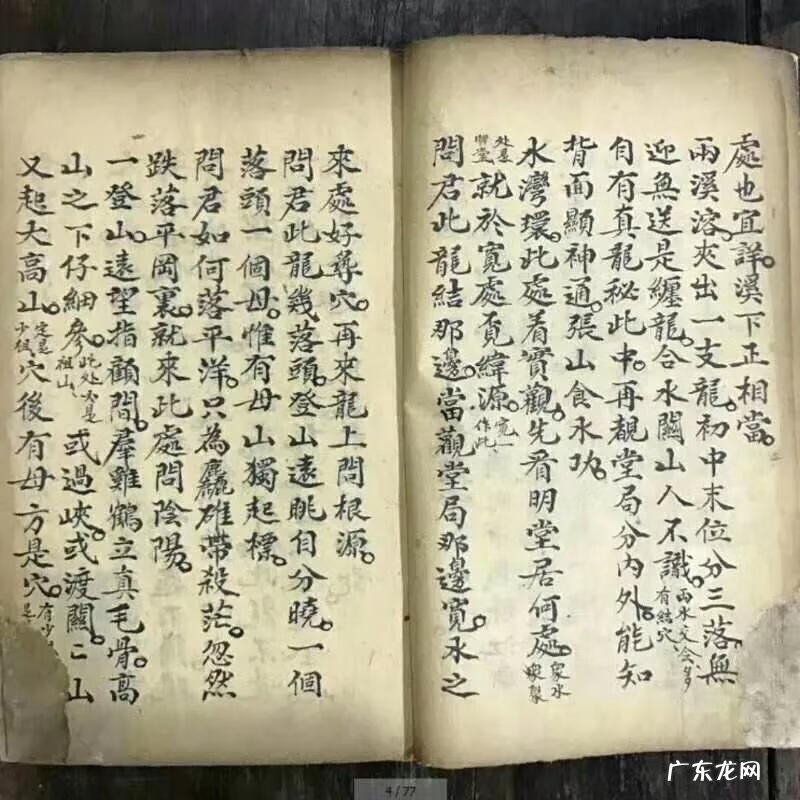 處也宜詳溪下正相當。
兩溪溶夾出一支龍。初中末位分三落。無
迎無送是纏龍。合水關山人不識。兩水交會多有結穴、
自有真龍秘此中。再覩堂局分內外。能知
背面顯神通。張山食水功。
水灣環。此處着實觀。先看明堂居何處。衆水聚
处是明堂就於寬處覓緯源。寬一作此、
問君此龍結那邊。當觀堂局那邊寬。水之
來處好尋穴。再來龍上問根源。
問君此龍幾落頭。登山遠眺自分曉。一個
落頭一個母。惟有母山獨起標。
問君如何落平洋。只為麤雄帶殺茫。忽然
跌落平岡裏。就來此處問陰陽。
一登山。遠望指顧間。羣雞鶴立真毛骨。高
山之下仔細參。此处必是祖山、或過峽。或渡關。山
又起大高山。定是少祖、穴後有母方是穴。有少是
4 / 77
广东龙网